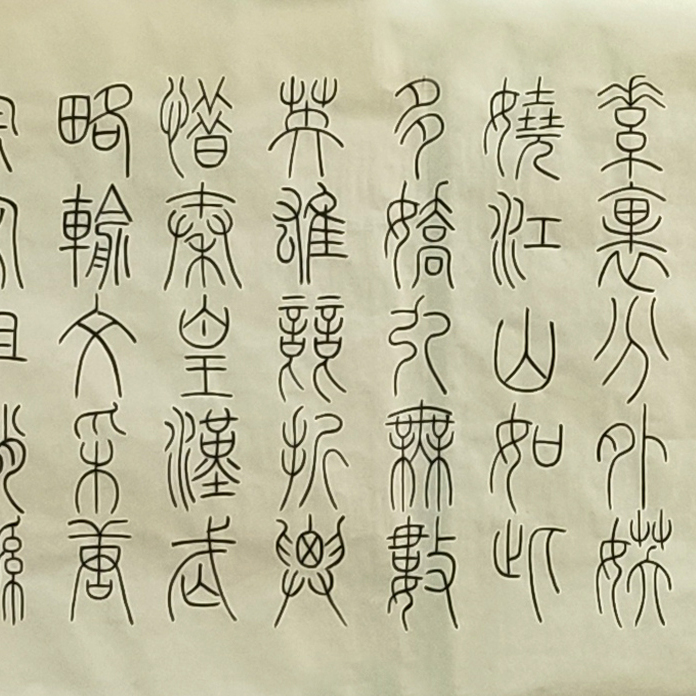 素裹分外妖
嬈江山如此
多嬌引無數
英雄競折腰
惜秦皇漢武
略輸文采唐